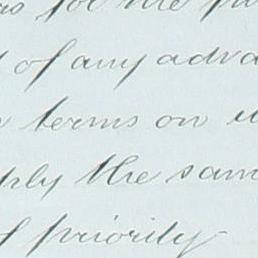 as for the
of any adva
terms on
ply the sam
of priority